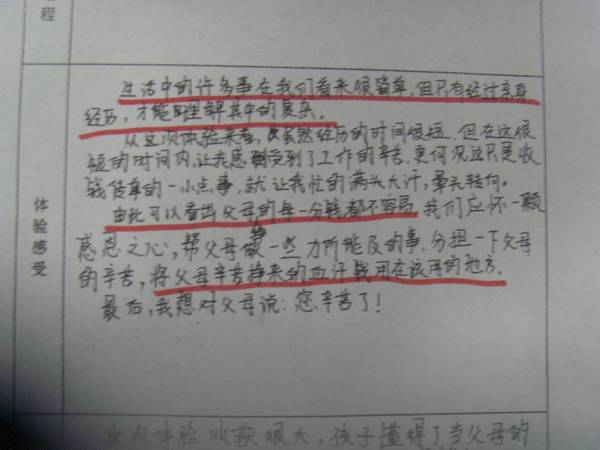 程
生活中的许多事在我们看来很简单,但只有经过亲身
经历,才能理解其中的复杂。
从这次体验来看,虽然经历的时间很短,但在这很
短的时间内,让我感受到了工作的辛苦,更何况这只是收
钱传单的一小点事,就让我忙的满头大汗,晕头转向。
由此可以看出父母的每一分钱都不容易,我们应怀一颗
感恩之心,帮父母做一些力所能及的事,分担一下父母
的辛苦,将父母辛苦挣来的血汗钱用在该用的地方。
最后,我想对父母说:您辛苦了!
体验感受
这次体验收获很大,孩子懂得了当父母的